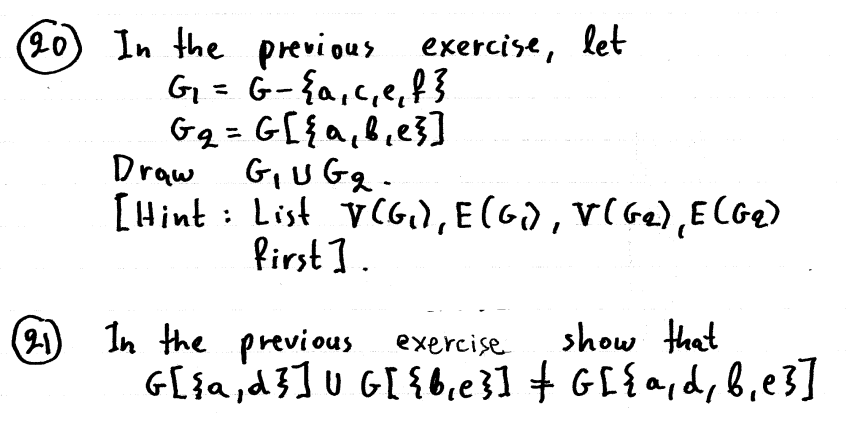 (20) In the previous exercise, let
G₁ = G-{a,c,e,f}
G₂ = G[{a,b,e}]
Draw G₁ ∪ G₂.
[Hint : List V(G₁), E(G₁), V(G₂), E(G₂)
first].
(21) In the previous exercise show that
G[{a,d}] ∪ G[{b,e}] ≠ G[{a,d,b,e}]